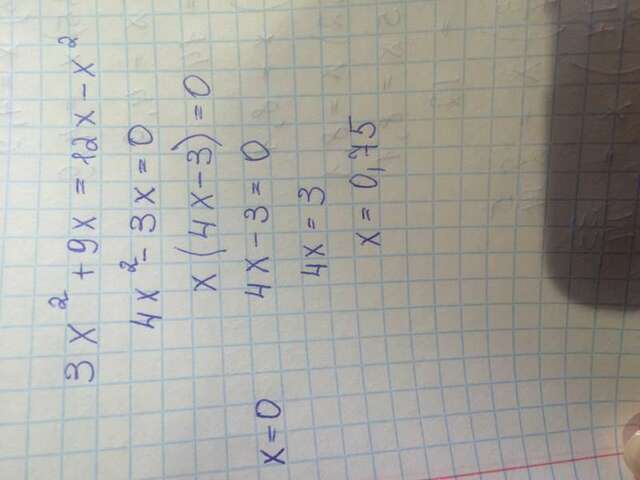 3x² + 9x = 12x - x²
4x² - 3x = 0
x(4x-3) = 0
x=0 4x - 3 = 0
4x = 3
x = 0,75